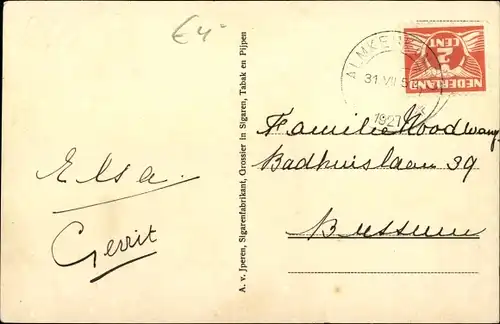 €4-
Elsa.
Gerrit
A. v. Jperen, Sigarenfabrikant, Grossier in Sigaren, Tabak en Pijpen
NEDERLAND
2½
CENT
ALMKERK
31 VII 5
1927
Familie Noodwang.
Badhuislaan 39
Bussum